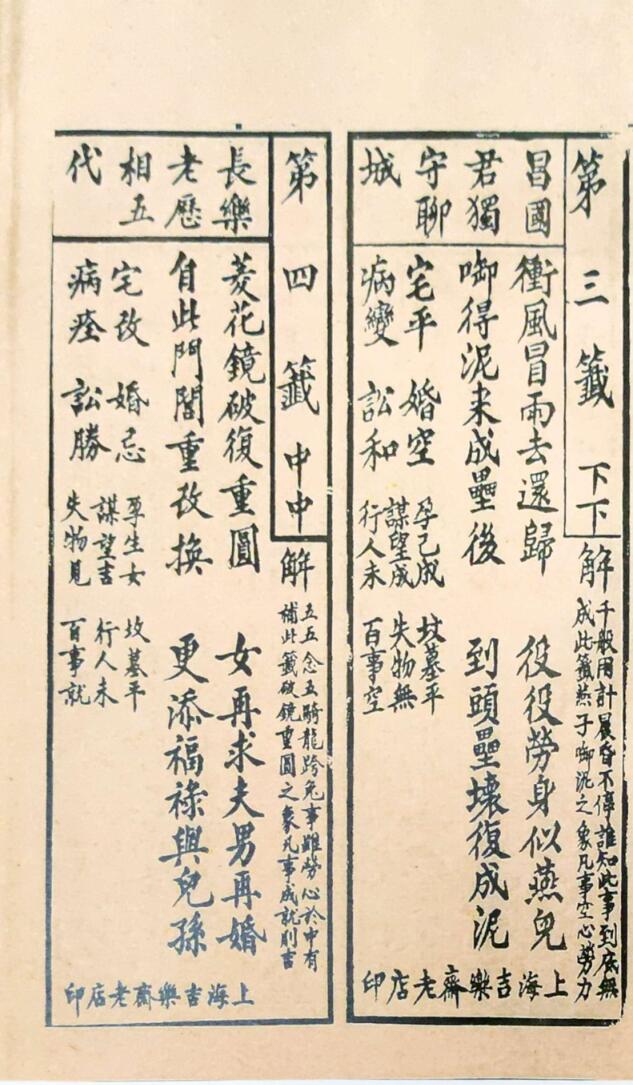 第三籤 下下
解 千般用計 晨昏不停 誰知此事 到底無
成 此籤燕子啣泥之象 凡事空心勞力
昌國
君獨
守聊
城
衝風冒雨去還歸 役役勞身似燕兒
啣得泥來成壘後 到頭壘壞復成泥
宅平 婚空 孕已成 墳墓平
謀望成 失物無
病變 訟和 行人未 百事空
上海吉樂齋老店印
第四籤 中中
解 五五念五 騎龍跨兔 事雖勞心 於中有
補 此籤破鏡重圓之象 凡事成就則吉
長樂
老歷
相五
代
菱花鏡破復重圓 女再求夫男再婚
自此門閭重改換 更添福祿與兒孫
宅改 婚忌 孕生女 坟墓平
謀望吉 行人未
病痊 訟勝 失物見 百事就
上海吉樂齋老店印